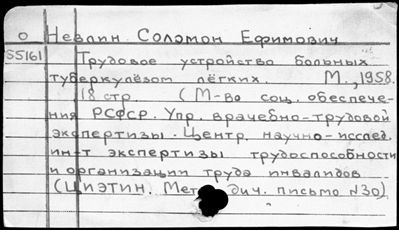 О Невлин. Соломон Ефимович
S5161 Трудовое устройство больных
туберкулёзом лёгких. М., 1958.
18 стр. (М-во соц. обеспече-
ния РСФСР. Упр. врачебно-трудовой
экспертизы. Центр. научно-исслед.
ин-т экспертизы трудоспособности
и организации труда инвалидов
(ЦИЭТИН. Мет дич. письмо N30)